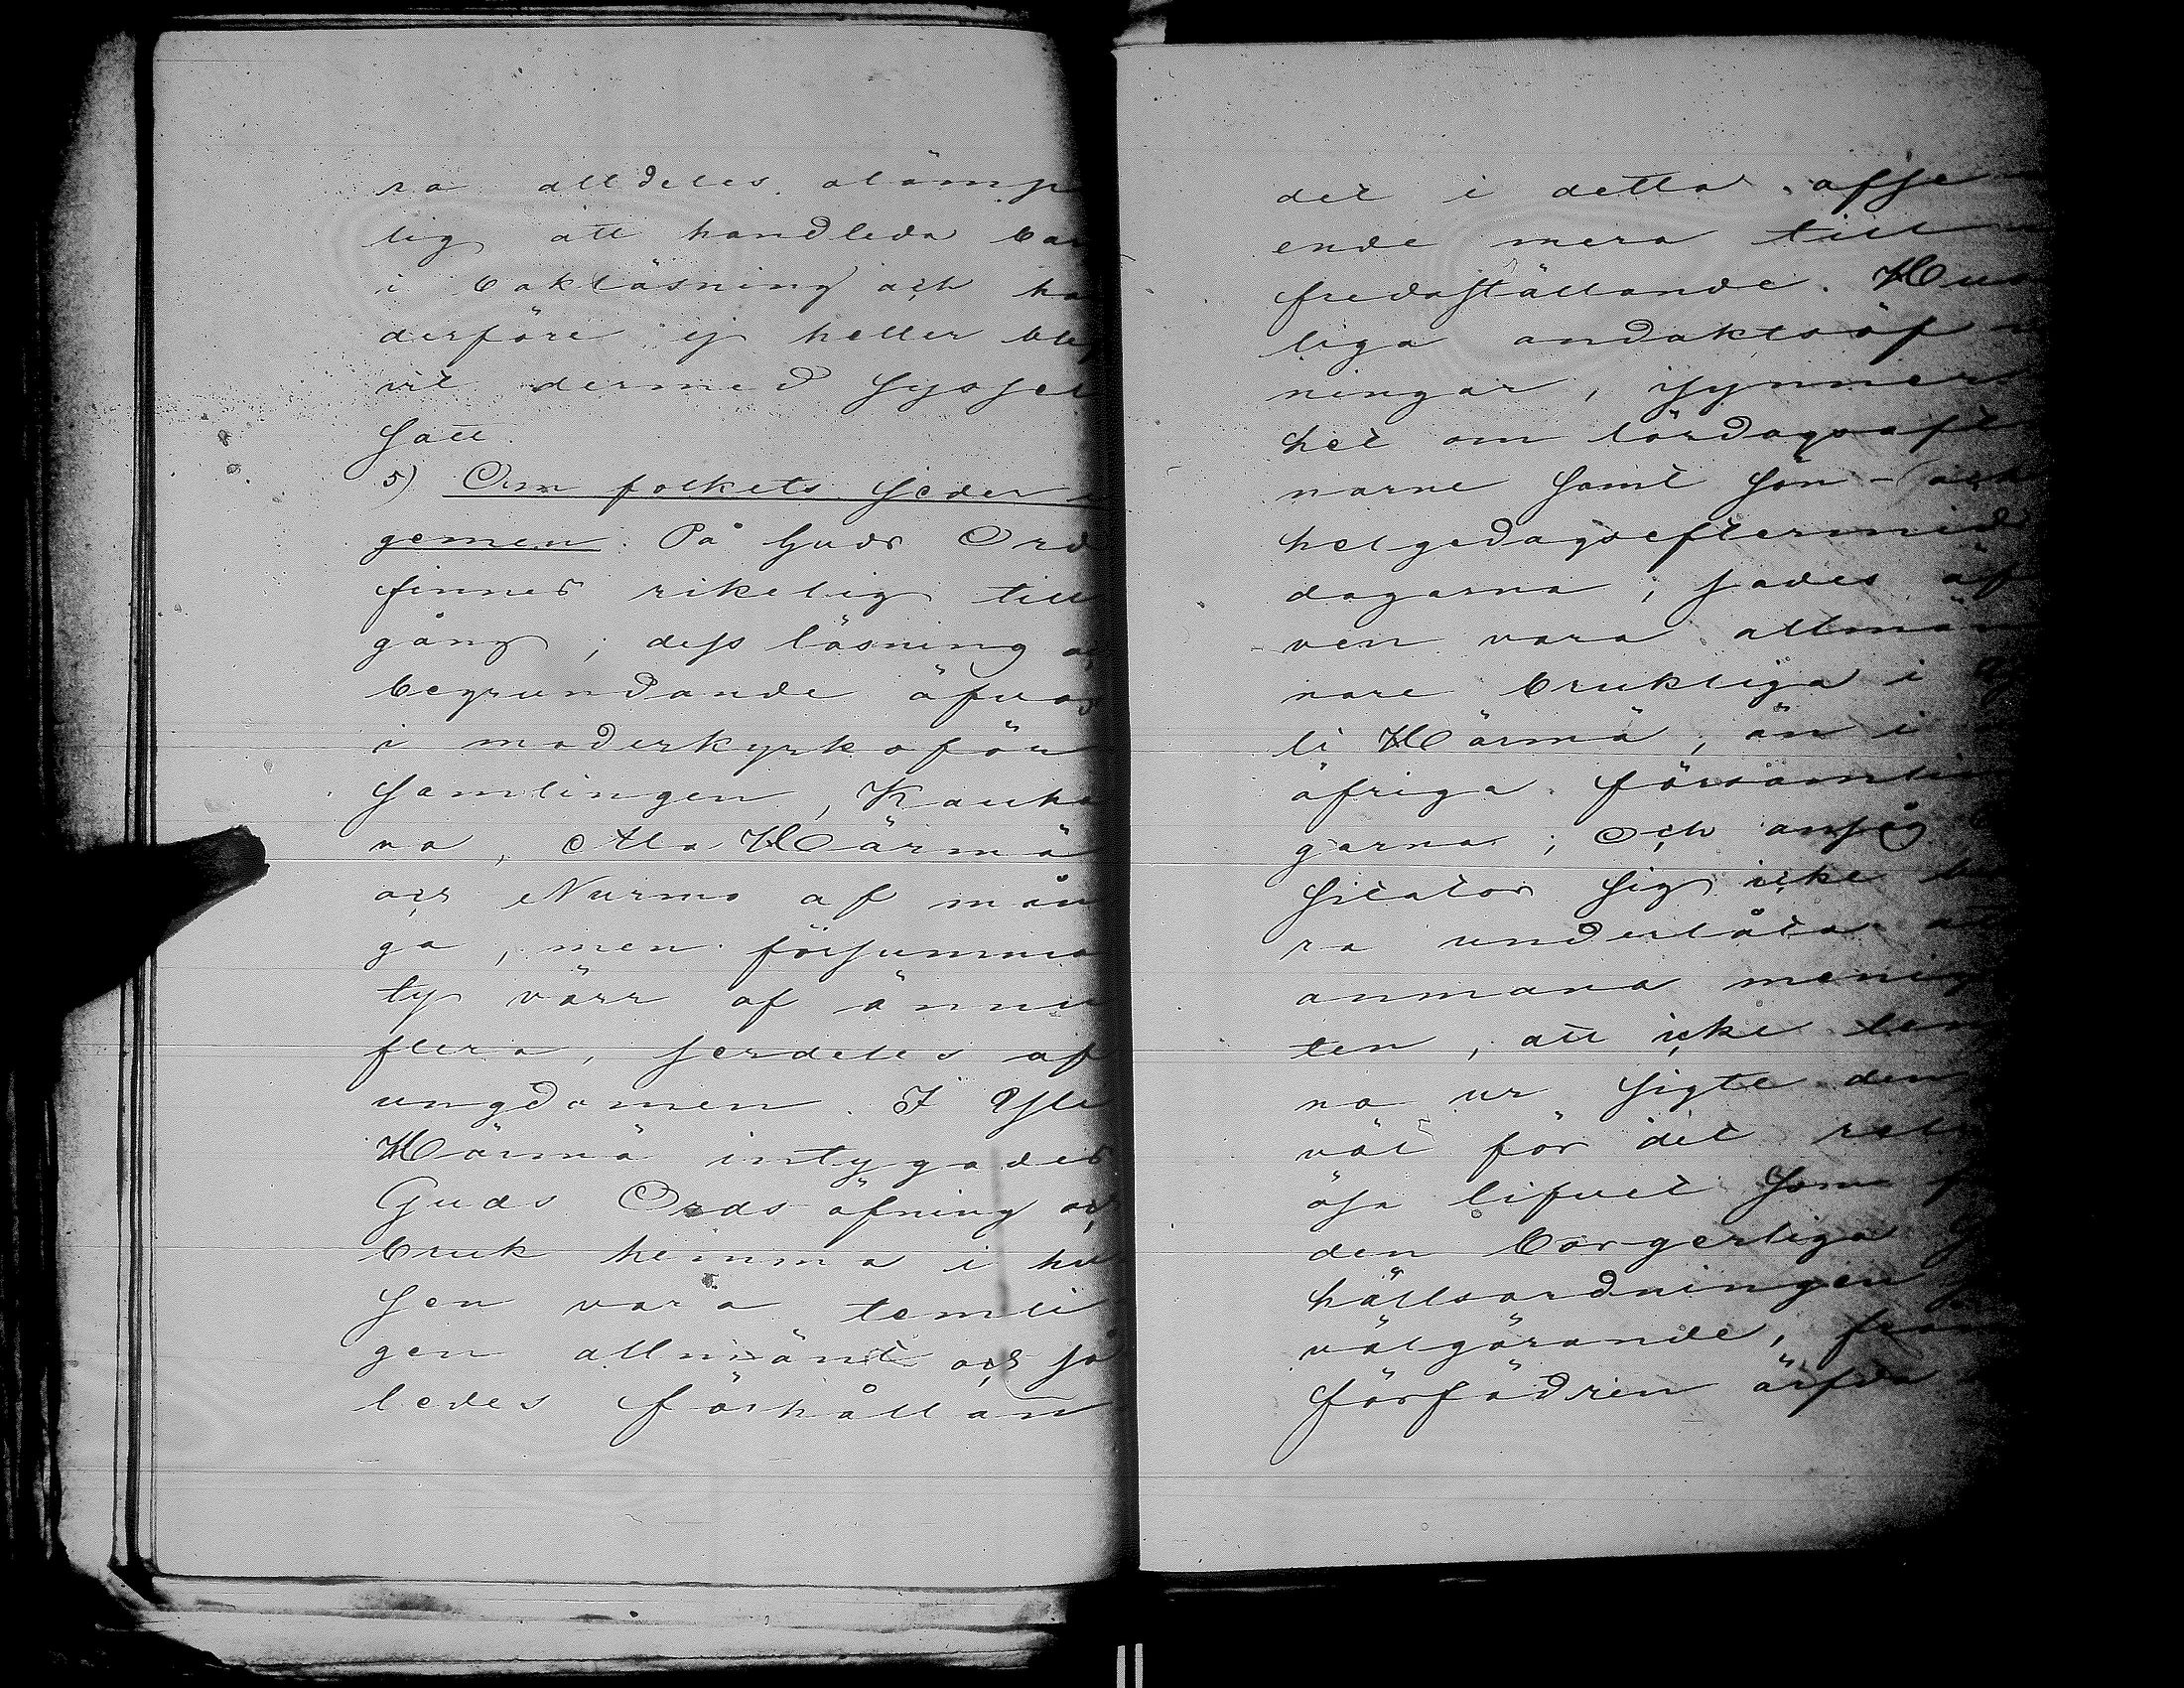 ra alldeles olämp
lig att handleda bar
i bokläsning och ha
derföre ej heller blif
vit dermed syssel
satt.
5) Om folkets seder i
gemen. På Guds Ord
finnes rikelig till
gång; dess läsning oc
begrundande öfvas
i moderkyrkoför
samlingen, Kauha
va, Ala Härmä
och Nurmo af mån
ga, men försumma
ty värr af ännu
flera, serdeles af
ungdomen. I Yli
Härmä intygades
Guds Ords öfning och
bruk hemma i hu
sen vara temli
gen allmänt och så
ledes förhållan
det i detta afse
ende mera till
fredsställande. Hus
liga andaktsöf
ningar, isynner
het om lördagsaft
narne samt sön- och
helgedagseftermid
dagarna, sades äf
ven vara allmän
nare brukliga i Y
li Härmä, än i
öfriga församlin
garna; Och ansåg
sitator sig icke bo
ra underlåta at
anmana menig
ten, att icke lem
na ur sigte den
väl för det reli
ösa lifvet som f
den borgerliga
hällsordningen
välgörande, från
förfädren ärfda